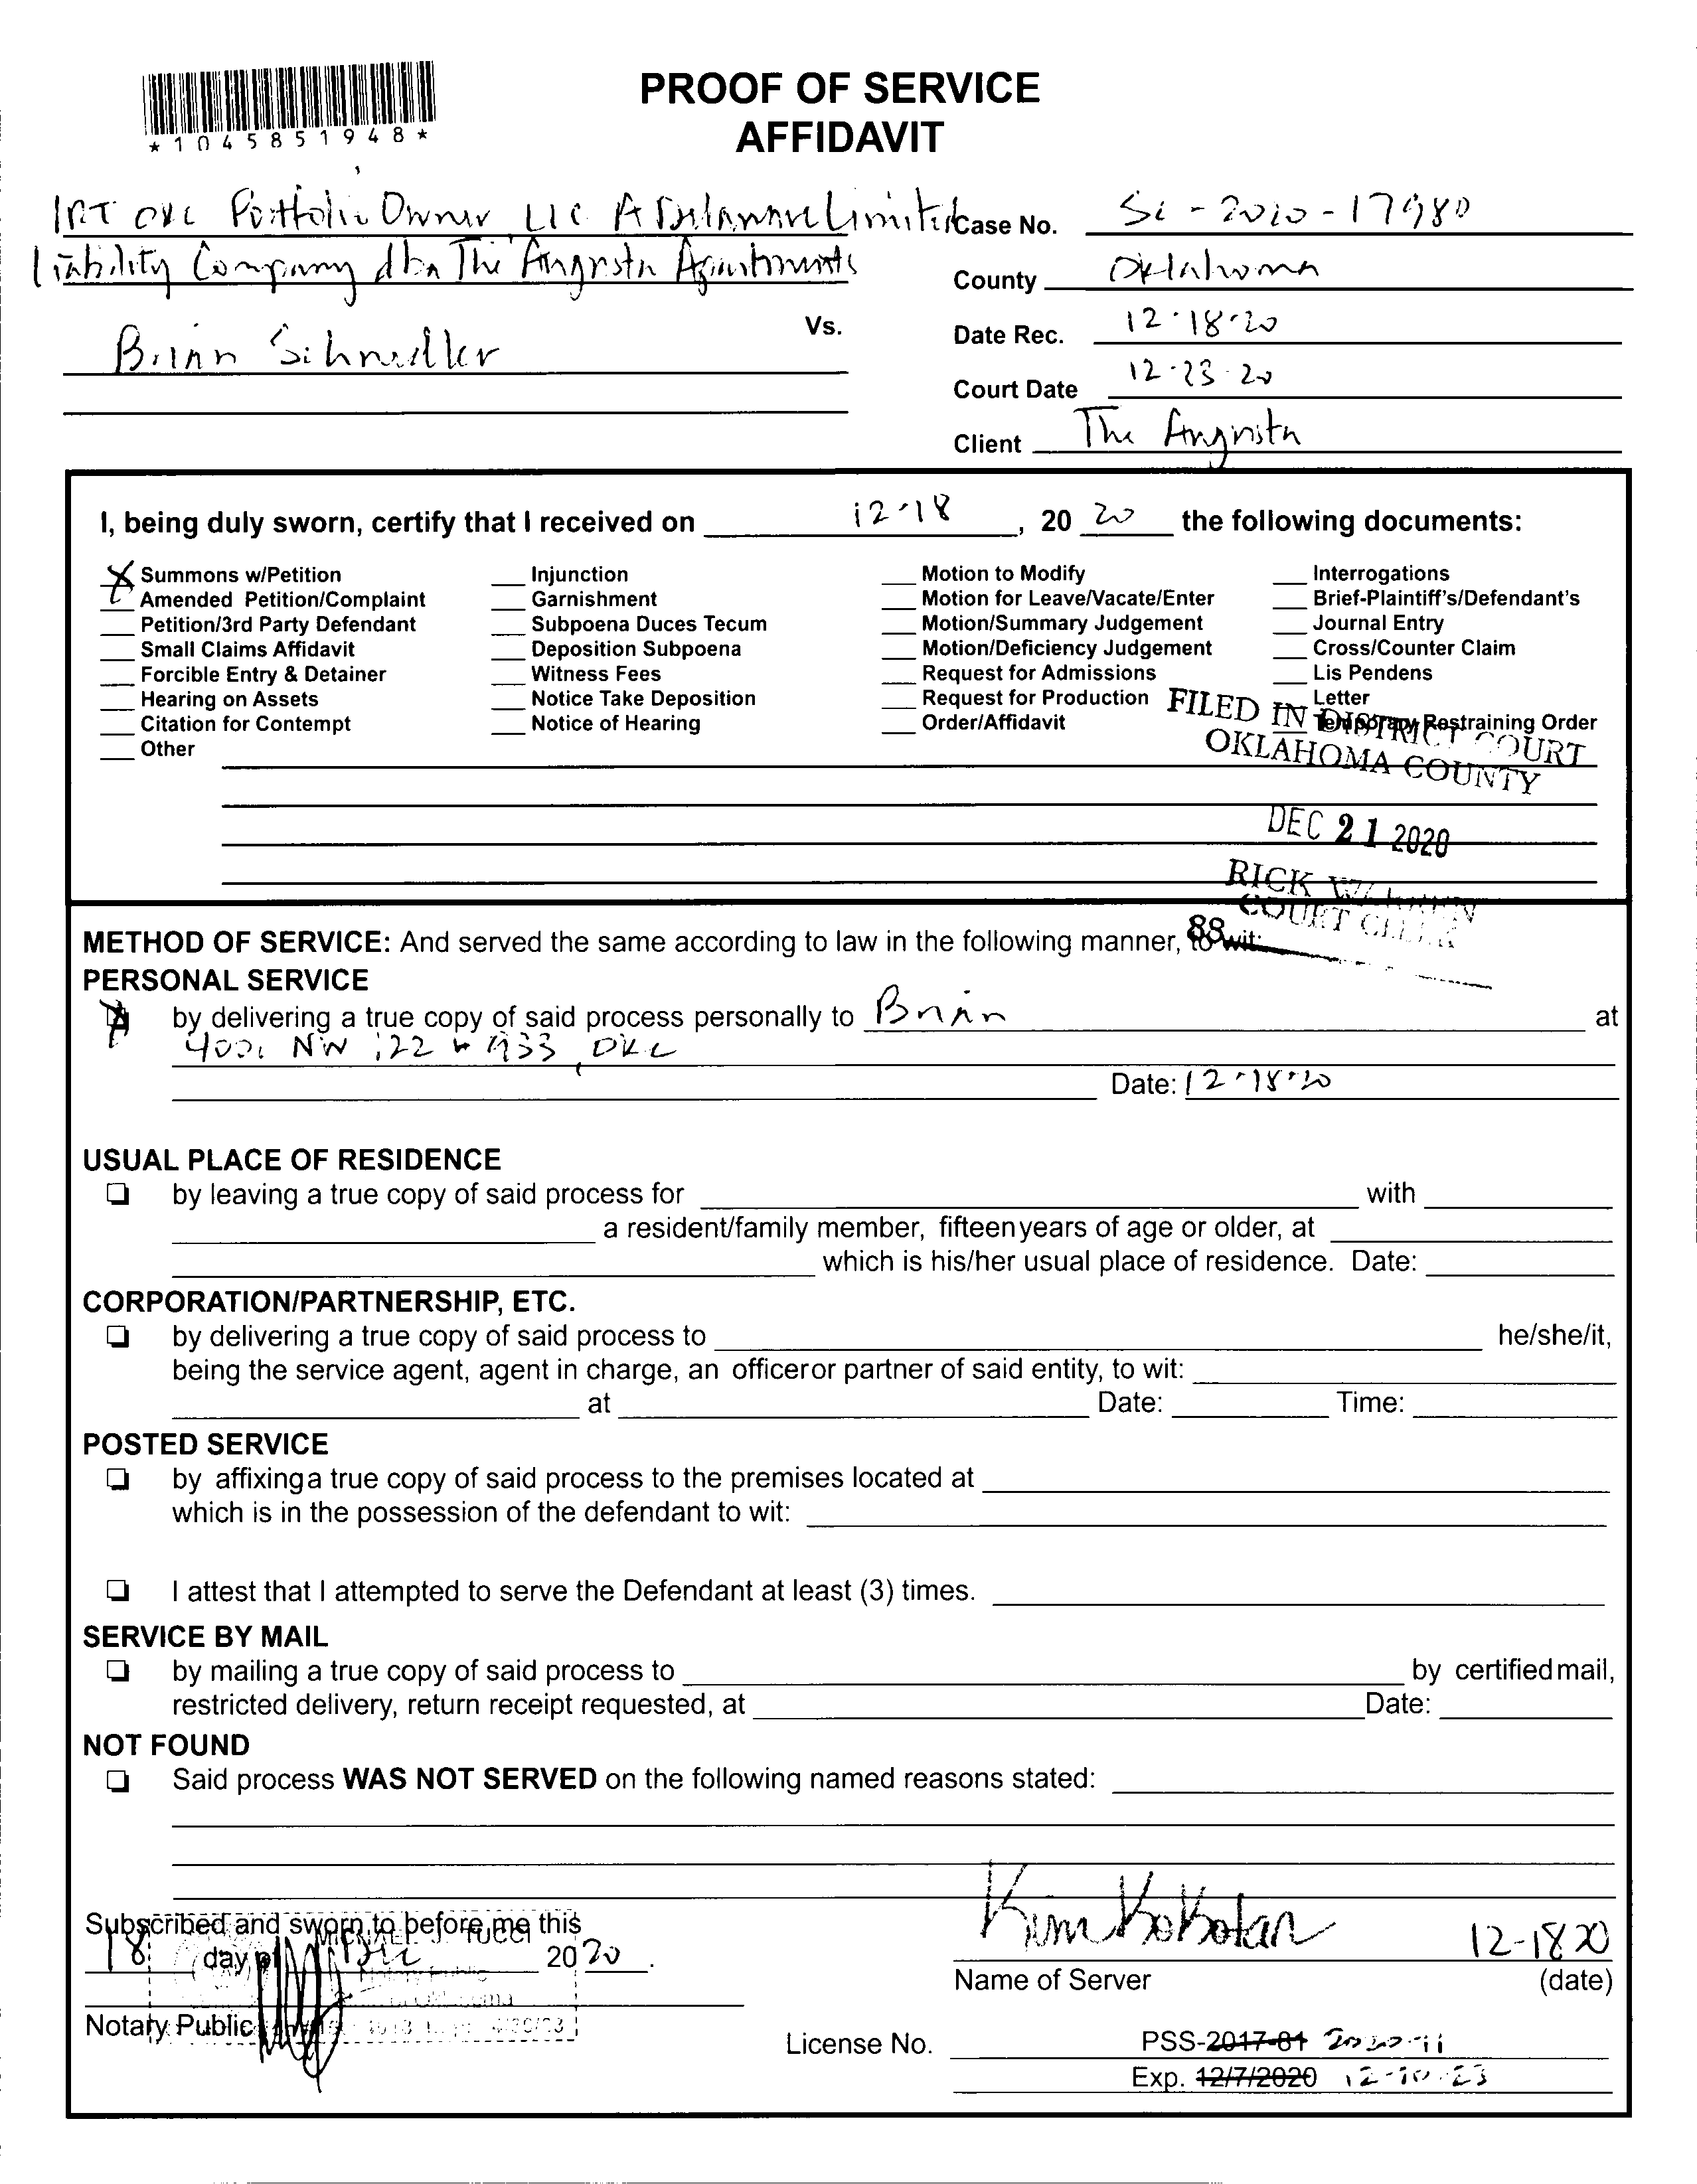 PROOF OF SERVICE
AFFIDAVIT
*1045851948*
IRT OKC Portfolio Owner LLC A Delaware Limited
Liability Company dba The Augusta Apartments
Vs.
Brian Schnedler
Case No. SC-2020-17980
County Oklahoma
Date Rec. 12-18-20
Court Date 12-23-20
Client The Augusta
I, being duly sworn, certify that I received on 12-18, 20 20 the following documents:
X Summons w/Petition
Amended Petition/Complaint
Petition/3rd Party Defendant
Small Claims Affidavit
Forcible Entry & Detainer
Hearing on Assets
Citation for Contempt
Other
Injunction
Garnishment
Subpoena Duces Tecum
Deposition Subpoena
Witness Fees
Notice Take Deposition
Notice of Hearing
Motion to Modify
Motion for Leave/Vacate/Enter
Motion/Summary Judgement
Motion/Deficiency Judgement
Request for Admissions
Request for Production
Order/Affidavit
Interrogations
Brief-Plaintiff's/Defendant's
Journal Entry
Cross/Counter Claim
Lis Pendens
Letter
Temporary Restraining Order
FILED IN DISTRICT COURT
OKLAHOMA COUNTY
DEC 21 2020
RICK WARREN
COURT CLERK
88
METHOD OF SERVICE: And served the same according to law in the following manner, to wit:
PERSONAL SERVICE
by delivering a true copy of said process personally to Brian at
4001 NW 122 # 933, OKC
Date: 12-18-20
USUAL PLACE OF RESIDENCE
by leaving a true copy of said process for with
a resident/family member, fifteen years of age or older, at
which is his/her usual place of residence. Date:
CORPORATION/PARTNERSHIP, ETC.
by delivering a true copy of said process to he/she/it,
being the service agent, agent in charge, an officer or partner of said entity, to wit:
at Date: Time:
POSTED SERVICE
by affixing a true copy of said process to the premises located at
which is in the possession of the defendant to wit:
I attest that I attempted to serve the Defendant at least (3) times.
SERVICE BY MAIL
by mailing a true copy of said process to by certified mail,
restricted delivery, return receipt requested, at Date:
NOT FOUND
Said process WAS NOT SERVED on the following named reasons stated:
Subscribed and sworn to before me this
18 day of Dec 2020.
TUCCI
Notary Public
Notary Public
Kim Kokotan 12-18 20
Name of Server (date)
License No. PSS-2017-81 2020-11
Exp. 12/7/2020 12-10-23